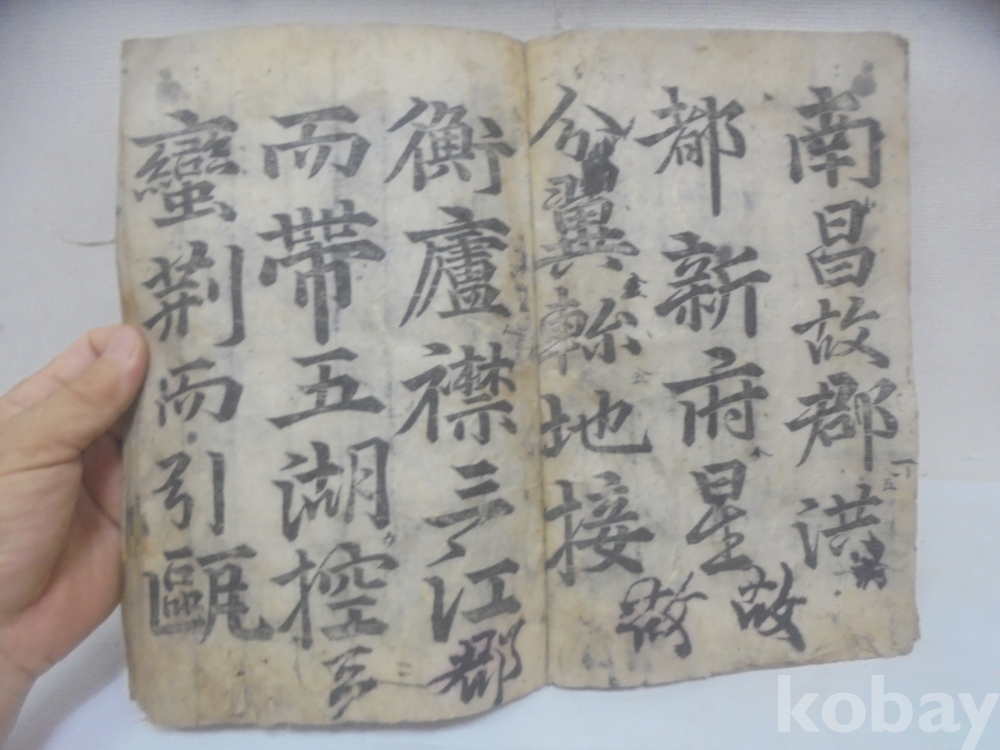 南昌故郡洪
都新府星
分翼軫地接
衡廬襟三江
而帶五湖控
蠻荆而引甌
故
郡
kobay